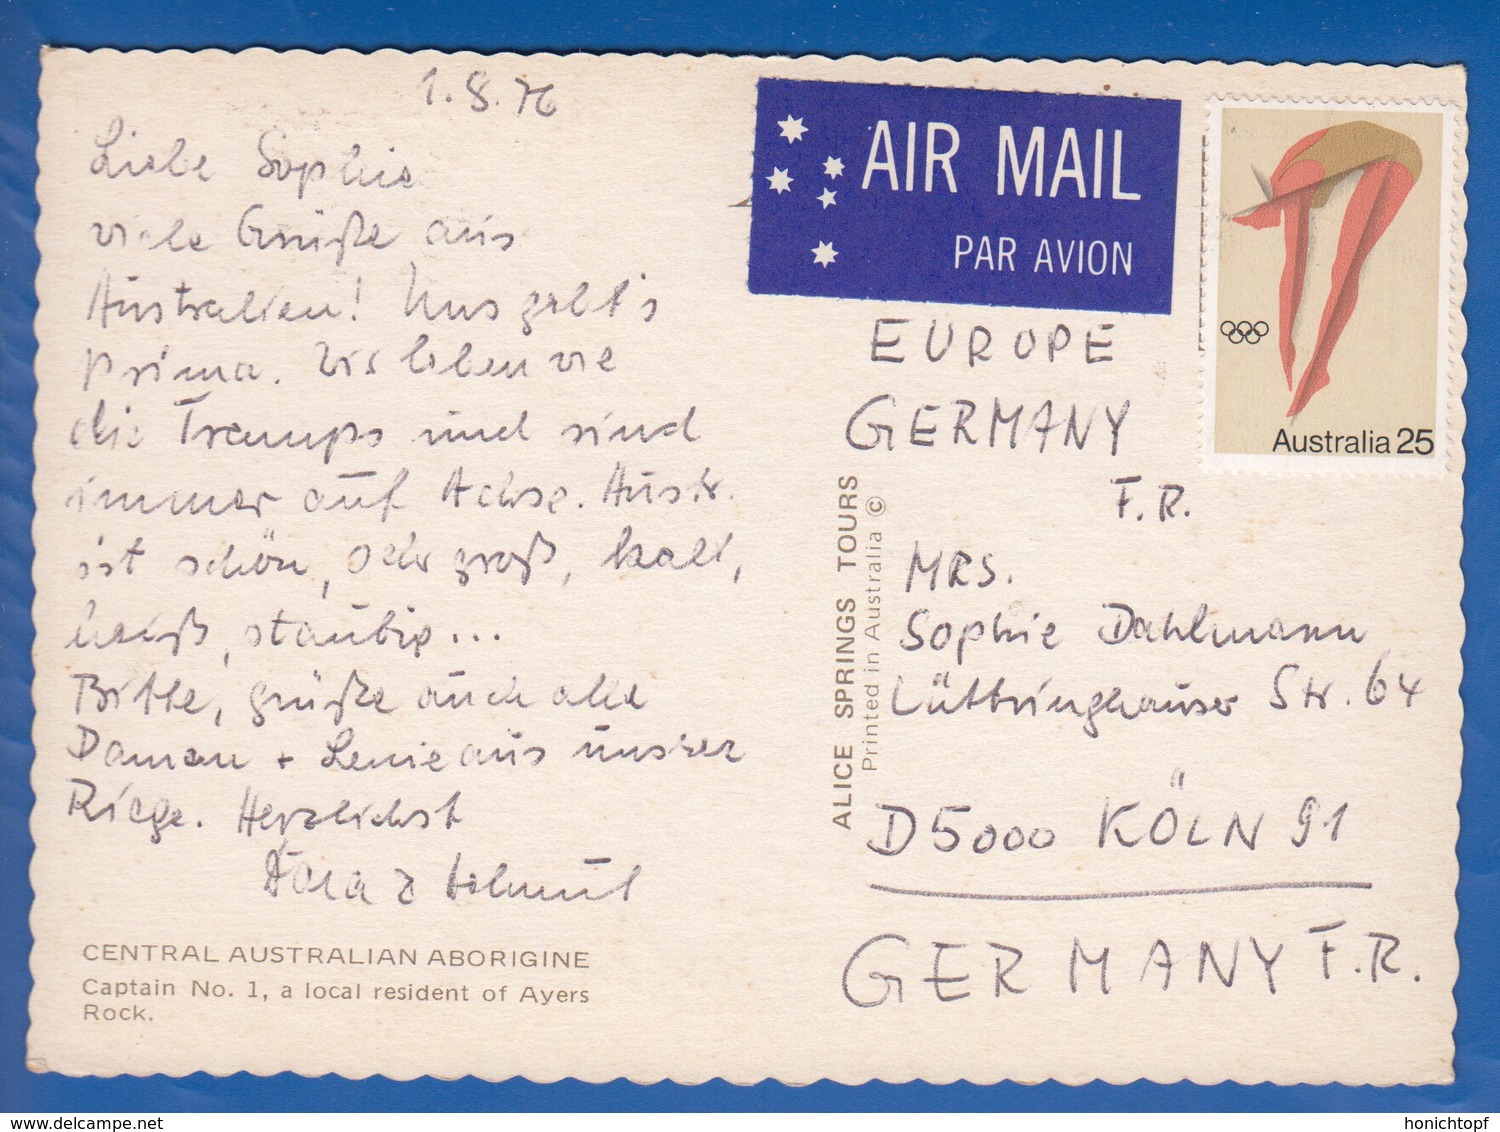 1.8.76
Liebe Sophie
viele Grüße aus
Australien! Uns geht's
prima. Wir leben wie
die Tramps und sind
immer auf Achse. Austr.
ist schön, sehr groß, kalt,
heiß, staubig...
Bitte, grüße auch alle
Damen + Lenie aus unserer
Riege. Herzlichst
Helmut
CENTRAL AUSTRALIAN ABORIGINE
Captain No. 1, a local resident of Ayers
Rock.
ALICE SPRINGS TOURS
Printed in Australia ©
AIR MAIL
PAR AVION
Australia 25
EUROPE
GERMANY
F.R.
MRS.
Sophie Dahlmann
Lüttringhauser Str. 64
D5000 KÖLN 91
GERMANY F.R.
www.delcampe.net
honichtopf